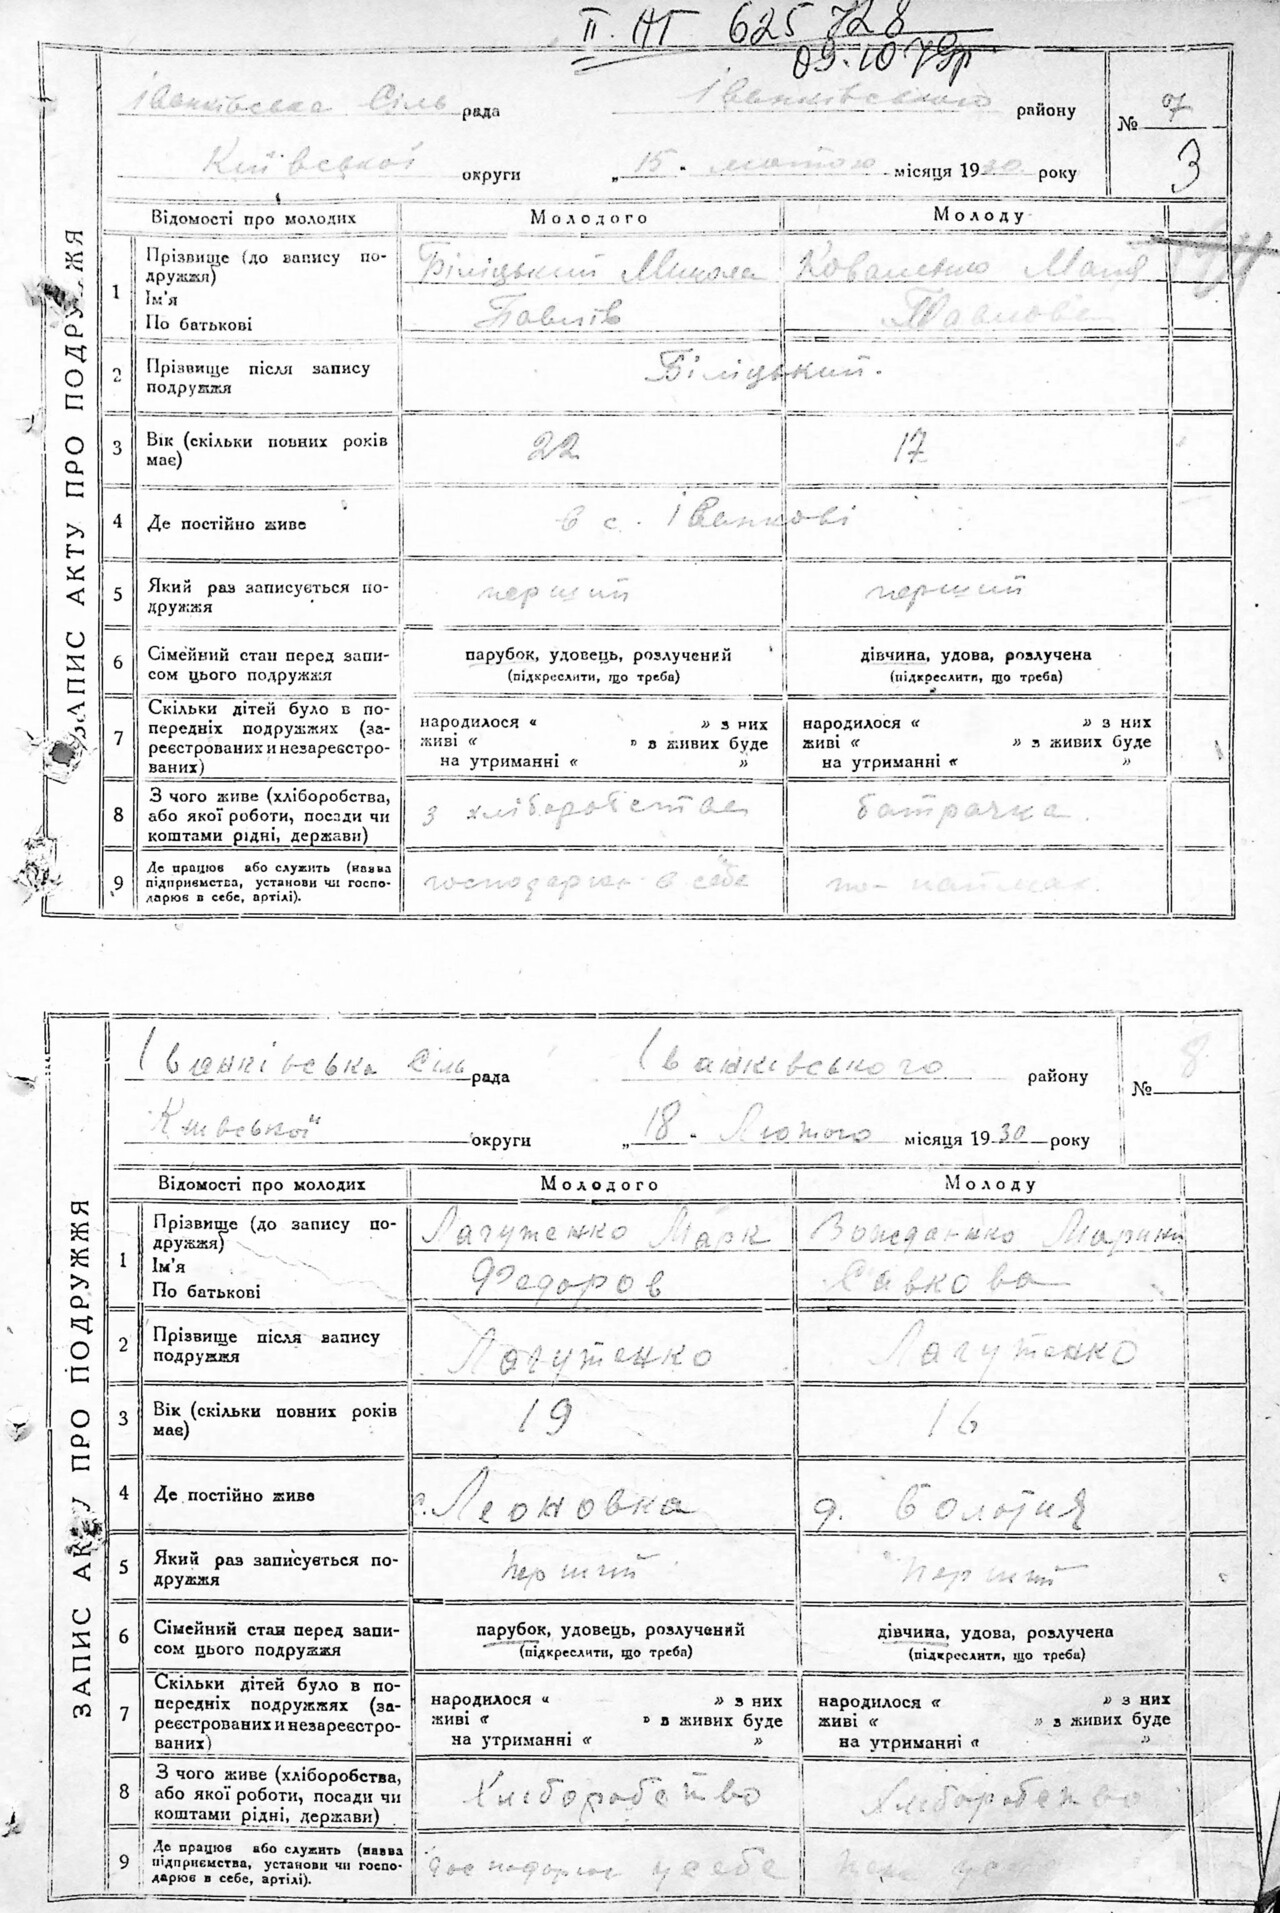 II. АГ 625728
09.10.79р
ЗАПИС АКТУ ПРО ПОДРУЖЖЯ
Іванківська Сіль рада Іванківського району
№ 7
3
Київської округи „15" лютого місяця 1930 року
Відомості про молодих Молодого Молоду
1 Прізвище (до запису подружжя) Біліцький Микола Коваленко Марія
Ім'я
По батькові Павлів Павлова
2 Прізвище після запису подружжя Біліцький.
3 Вік (скільки повних років має) 22 17
4 Де постійно живе в с. Іванкові
5 Який раз записується подружжя перший перший
6 Сімейний стан перед записом цього подружжя парубок, удовець, розлучений дівчина, удова, розлучена
(підкреслити, що треба) (підкреслити, що треба)
7 Скільки дітей було в попередніх подружжях (зареєстрованих и незареєстрованих) народилося „ " з них народилося „ " з них
живі „ " в живих буде живі „ " з живих буде
на утриманні „ " на утриманні „ "
8 З чого живе (хліборобства, або якої роботи, посади чи коштами рідні, держави) з хліборобства батрачка.
9 Де працює або служить (назва підприємства, установи чи господарює в себе, артілі). господарює в себе по наймах.
ЗАПИС АКТУ ПРО ПОДРУЖЖЯ
Іванківська Сіль рада Іванківського району
№ 8
Київської округи „18" Лютого місяця 1930 року
Відомості про молодих Молодого Молоду
1 Прізвище (до запису подружжя) Лагутенко Марк Марина
Ім'я
По батькові Федоров Савкова
2 Прізвище після запису подружжя Лагутенко Лагутенко
3 Вік (скільки повних років має) 19 16
4 Де постійно живе с. Леоновка д. Болотня
5 Який раз записується подружжя перший перший
6 Сімейний стан перед записом цього подружжя парубок, удовець, розлучений дівчина, удова, розлучена
(підкреслити, що треба) (підкреслити, що треба)
7 Скільки дітей було в попередніх подружжях (зареєстрованих и незареєстрованих) народилося „ " з них народилося „ " з них
живі „ " в живих буде живі „ " з живих буде
на утриманні „ " на утриманні „ "
8 З чого живе (хліборобства, або якої роботи, посади чи коштами рідні, держави) Хліборобство Хліборобство
9 Де працює або служить (назва підприємства, установи чи господарює в себе, артілі). Господарює у себе